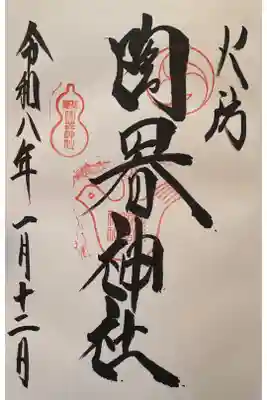 火防
陶器神社
令和八年一月十二日